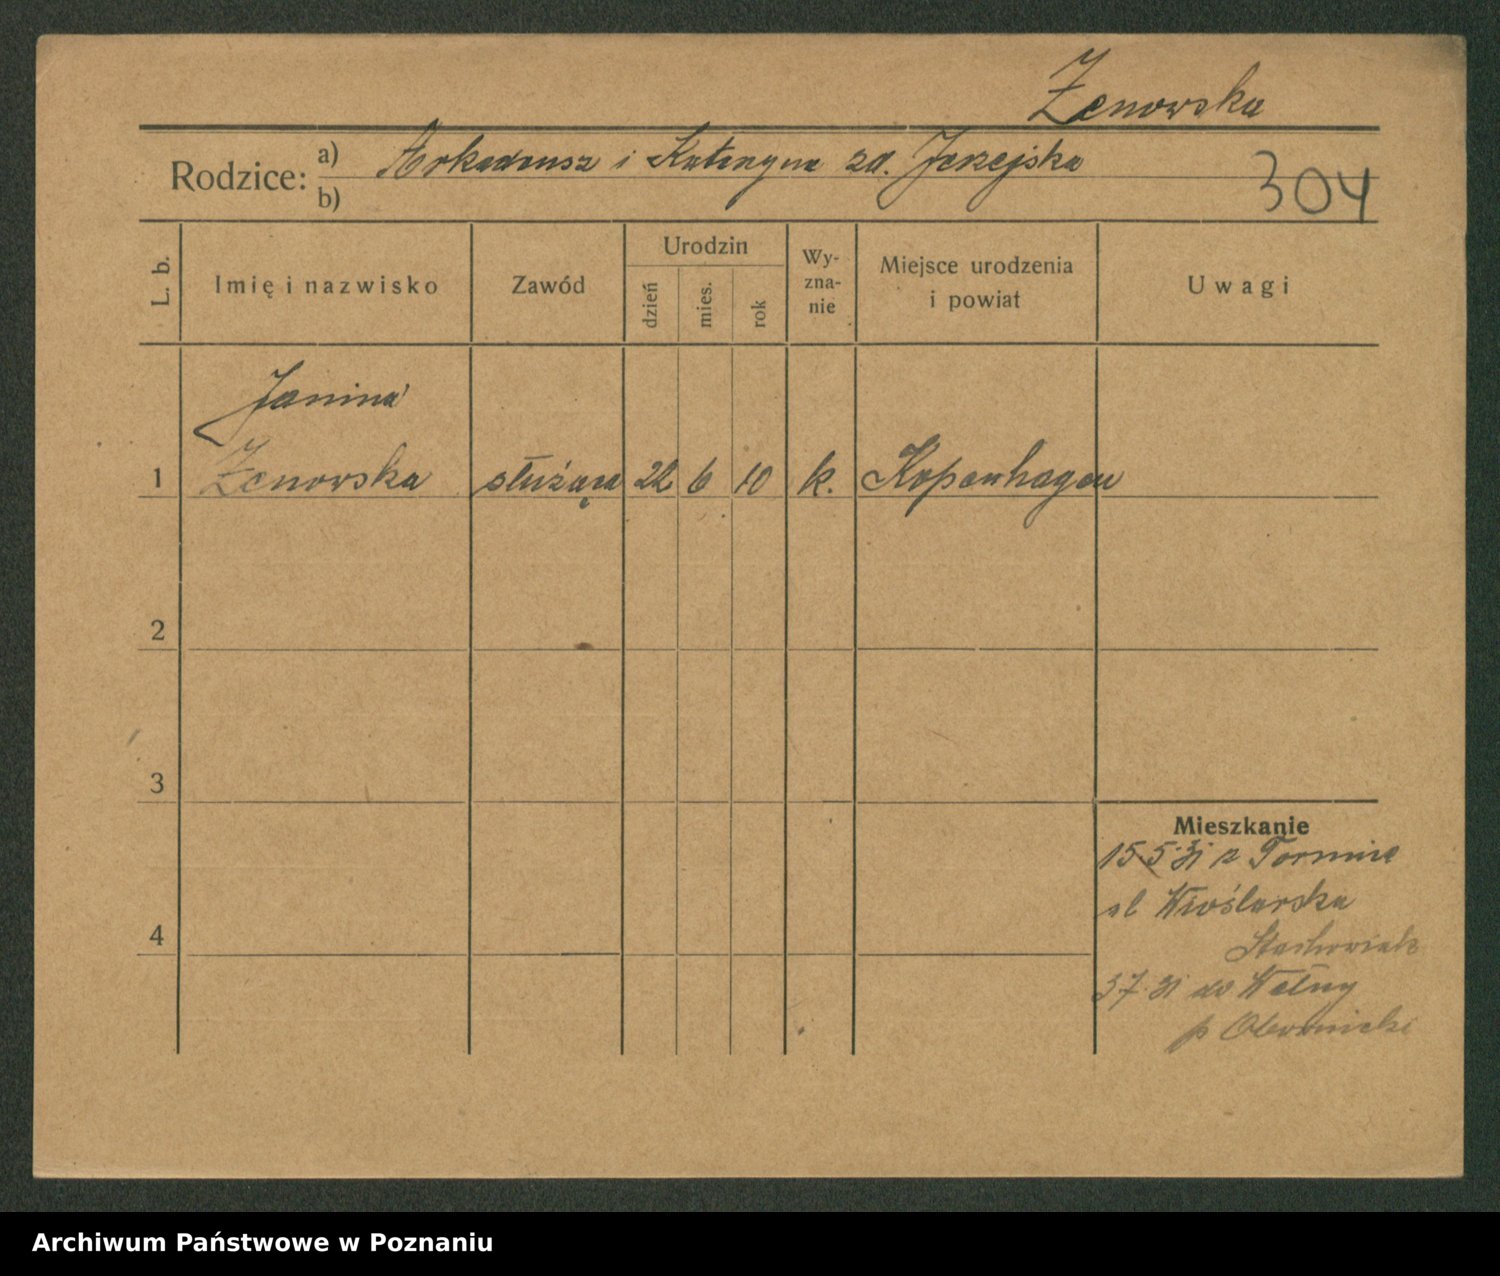 Żenowska
Rodzice: a) Arkadeusz i Katarzyna zd. Jerzejska
b)
304
L. b. Imię i nazwisko Zawód Urodzin dzień mies. rok Wy-zna-nie Miejsce urodzenia i powiat Uwagi
Janina
1 Żenowska służąca 22 6 10 k. Kopenhagen
2
3
Mieszkanie
15.5.31 z
ul Wioślarska
4
Stachowiak
3 7 31 do Wełny
p Oborniki
Archiwum Państwowe w Poznaniu